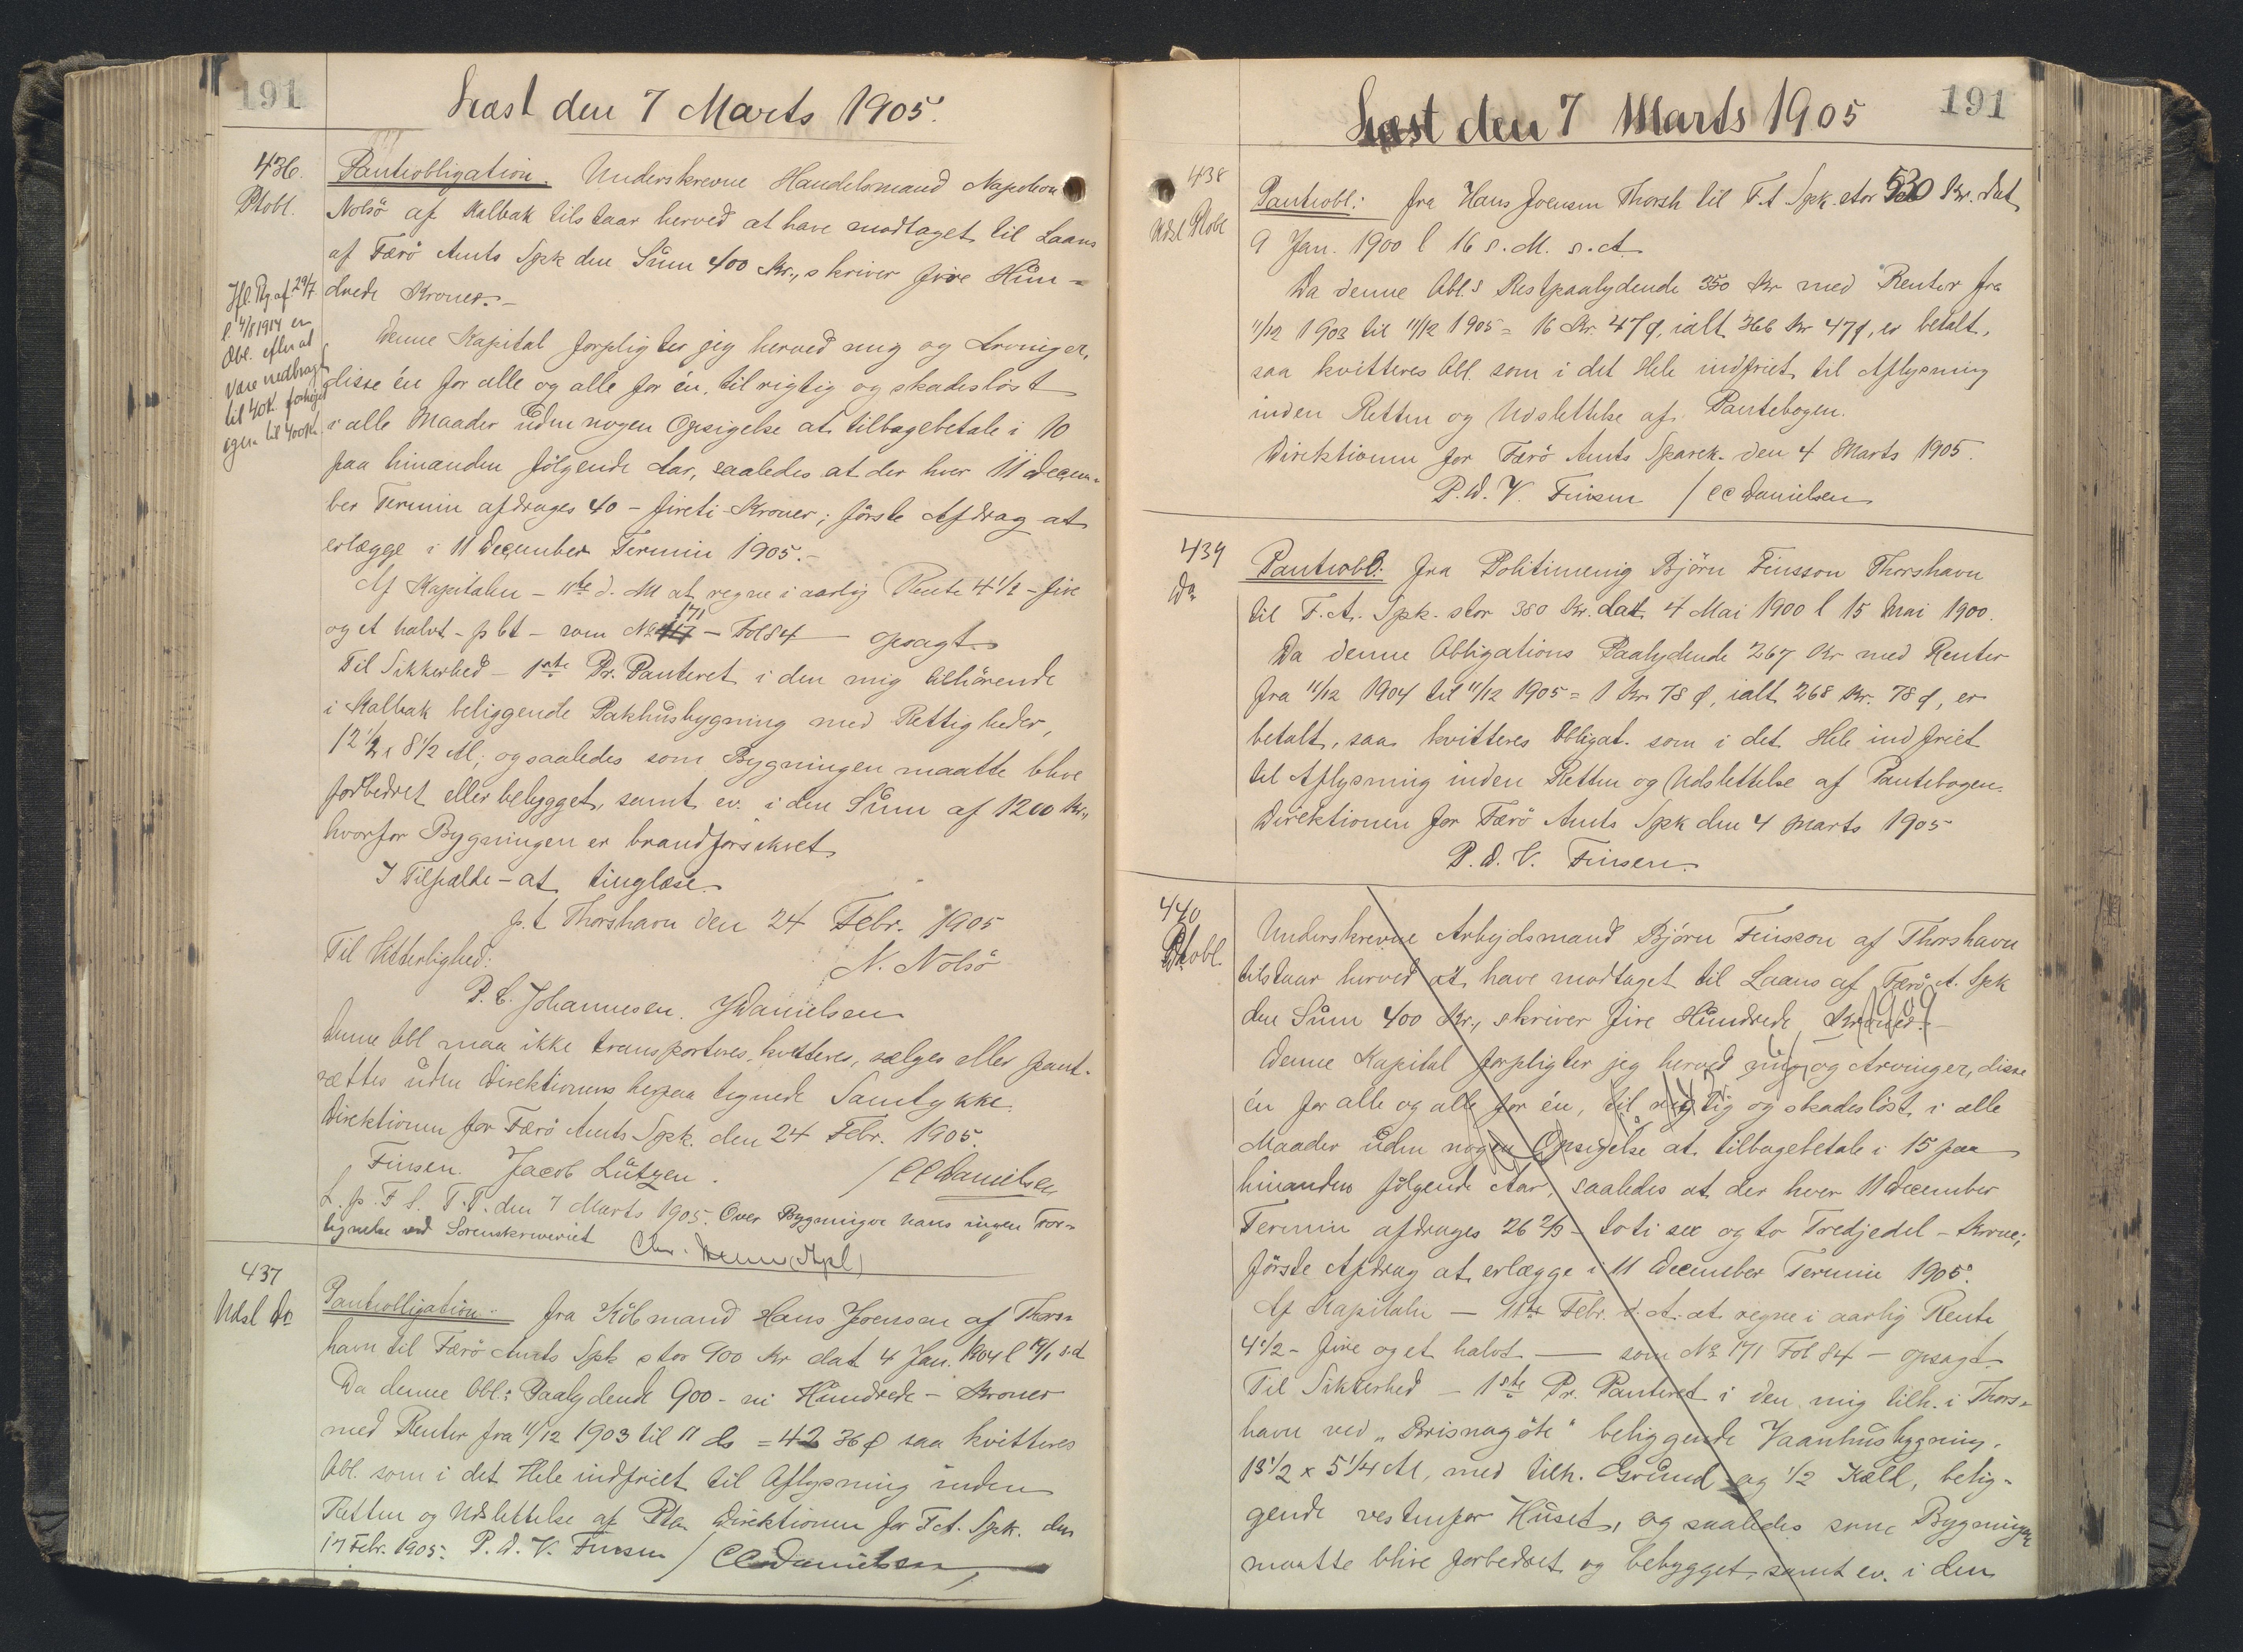 191
Læst den 7 Marts 1905.
436.
Ptobl.
Pantiobligation. Underskrevne Handelsmand Napoleon
Nolsö af Kalbak tilstaar herved at have modtaget til Laans
af Færö Amts Spk den Sum 400 Kr., skriver fire Hun-
drede Kroner.-
Hfl. Ptg af 29/7
l 4/8 1914 er
Obl. efter at
være nedbragt
til 40 K. forhöjet
igen til 400 K.
Denne Kapital forpligter jeg herved mig og Arvinger,
disse én for alle og alle for én, til rigtig og skadeslöst
i alle Maader uden nogen Opsigelse at tilbagebetale i 10
paa hinanden fölgende Aar, saaledes at der hver 11 Decem-
ber Termin afdrages 40 - fireti - Kroner; förste Afdrag at
erlægge i 11 December Termin 1905.-
Af Kapitalen - 11te d. M at regne i aarlig Rente 4 1/2 - fire
og et halvt - p Ct - som No 171 - Fol 84 - opsagt.
Til Sikkerhed - 1ste Pr. Panteret i den mig tilhörende
i Kalbak beliggende Pakhusbygning med Rettigheder,
12 1/2 x 8 1/2 Al; og saaledes som Bygningen maatte blive
forbedret eller bebygget, samt ev. i den Sum af 1200 Kr.,
hvorfor Bygningen er brandforsikret
I Tilfælde - at tinglæse.
p.t Thorshavn den 24 Febr. 1905
Til Vitterlighed: N. Nolsö
P. C. Johannesen. J Danielsen
Denne Obl maa ikke transporteres, kvitteres, sælges eller pant-
sættes uden Direktionens herpaa tegnede Samtykke.
Direktionen for Færö Amts Spk. den 24 Febr. 1905.
Finsen. Jacob Lützen. / CC Danielsen
L. p. F S. T.T. den 7 Marts 1905. Over Bygningen haves ingen For-
tegnelse ved Sorenskriveriet
437
Udsl Do
Pantiobligation fra Köbmand Hans Joensen af Thors-
havn til Færö Amts Spk stor 900 Kr dat 4 Jan. 1904 l 19/1 s.A
Da denne Obl: Paalydende 900 - ni Hundrede - Kroner
med Renter fra 11/12 1903 til 11 ds = 42 36 ø saa kvitteres
Obl. som i det Hele indfriet til Aflysning inden
Retten og Udslettelse af Ptbn Direktionen for F.A. Spk. den
17 Febr. 1905. P. D. V. Finsen / CC Danielsen
191
Læst den 7 Marts 1905
438
Udsl Ptobl
Pantiobl: fra Hans Joensen Thorsh til F.A Spk. stor 530 Kr. dat
9 Jan. 1900 l 16 s. M. s. A.
Da denne Obl.s Restpaalydende 350 Kr med Renter fra
11/12 1903 til 11/12 1905 = 16 Kr. 47 ø, ialt 366 Kr 47 ø, er betalt,
saa kvitteres Obl. som i det Hele indfriet til Aflysning
inden Retten og Udslettelse af Pantebogen.
Direktionen for Færö Amts Sparek. den 4 Marts 1905.
P. D. V. Finsen / CC Danielsen
439
Do
Pantiobl: fra Politimenig Björn Finsson Thorshavn
til F. A. Spk. stor 380 Kr. dat 4 Mai 1900 l 15 Mai 1900.
Da denne Obligations Paalydende 267 Kr med Renter
fra 11/12 1904 til 11/12 1905 = 1 Kr 78 ø, ialt 268 Kr. 78 ø, er
betalt, saa kvitteres Obligat. som i det Hele indfriet
til Aflysning inden Retten og Udslettelse af Pantebogen.
Direktionen for Færö Amts Spk den 4 Marts 1905
P. D. V. Finsen.
440
Ptobl.
Underskrevne Arbejdsmand Björn Finsson af Thorshavn
tilstaar herved at have modtaget til Laans af Færö A. Spk
den Sum 400 Kr., skriver fire Hundrede Kroner.-
Denne Kapital forpligter jeg herved mig og Arvinger, disse
én for alle og alle for én, til rigtig og skadeslöst i alle
Maader uden nogen Opsigelse at tilbagebetale i 15 paa
hinanden fölgende Aar, saaledes at der hver 11 December
Termin afdrages 26 2/3 - toti sex og to Tredjedel - Krone;
förste Afdrag at erlægge i 11 December Termin 1905.
Af Kapitalen - 11te Febr. d. A. at regne i aarlig Rente
4 1/2 - fire og et halvt - som No 171 Fol 84 - opsagt.
Til Sikkerhed - 1ste Pr. Panteret i den mig tilh. i Thors-
havn ved "Brisnagöte" beliggende Vaanhusbygning.
13 1/2 x 5 1/4 Al, med tilh. Grund og 1/2 Kæld, belig-
gende vestenfor Huset, og saaledes som Bygningen
maatte blive forbedret og bebygget, samt ev. i den